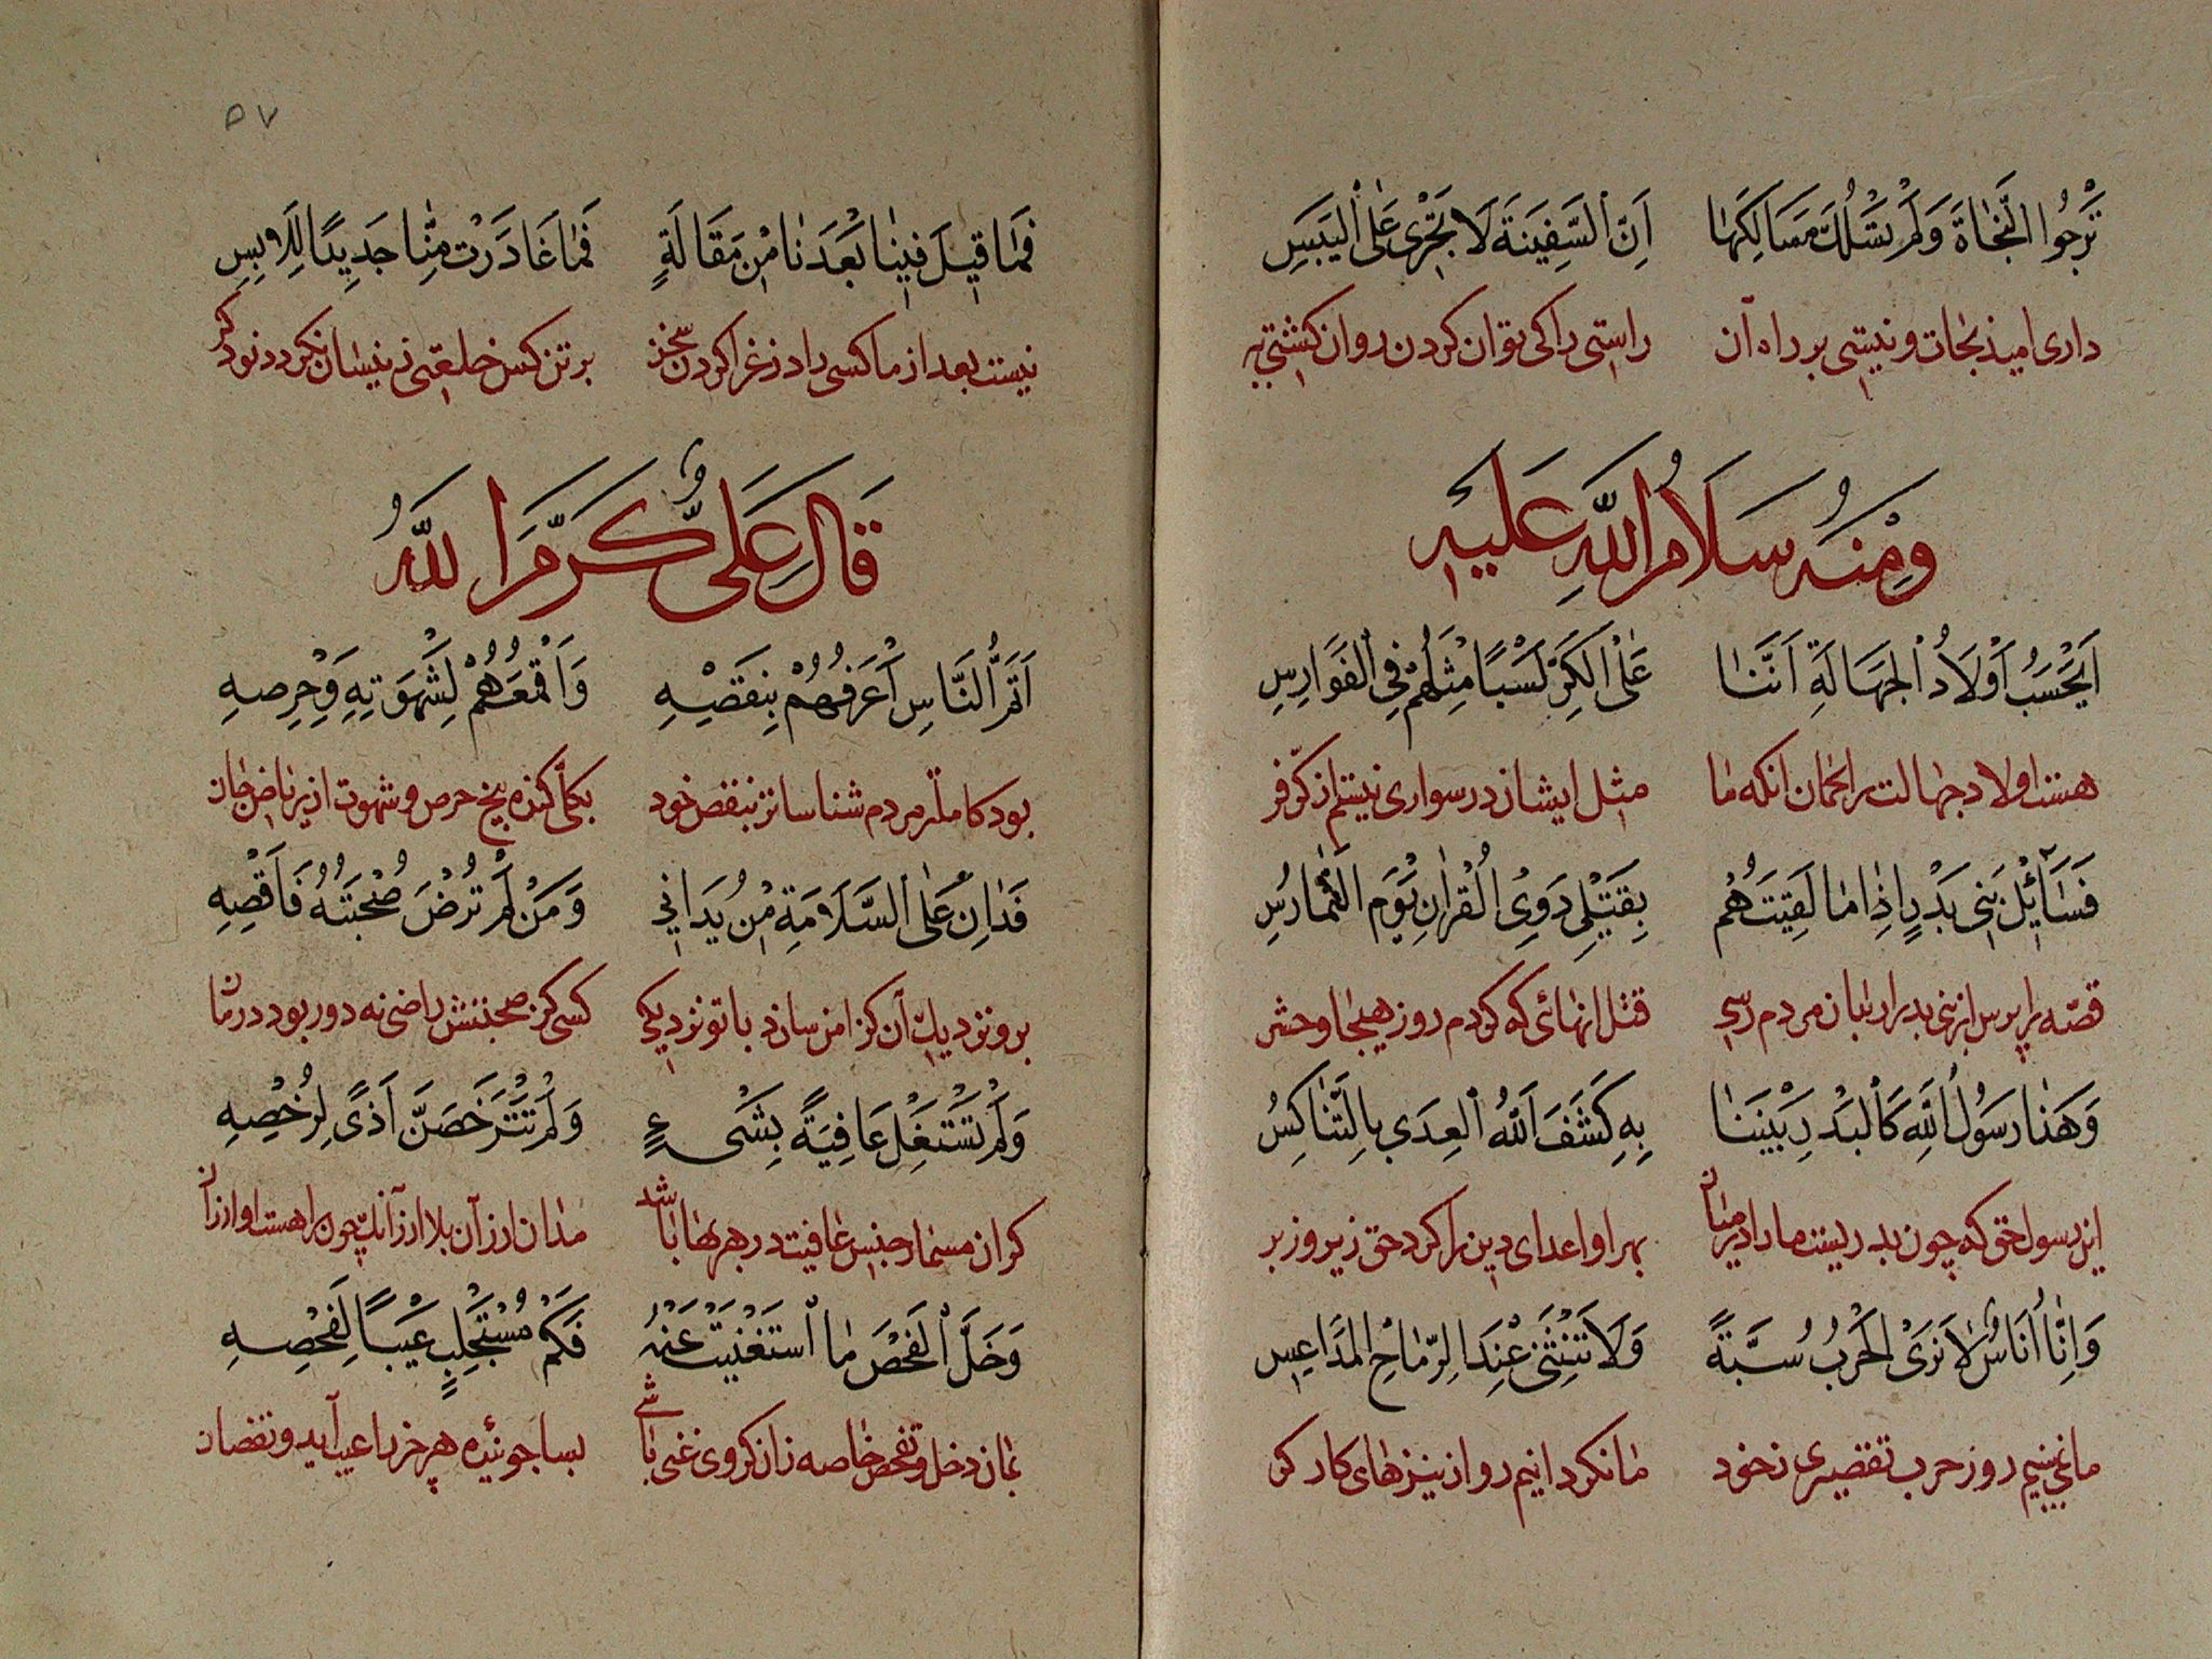 تَرْجُوا النَّجَاةَ وَلَمْ تَسْلُكْ مَسَالِكَهَا اِنَّ السَّفِينَةَ لَا تَجْرِي عَلَى الْيَبَسِ
داری امید نجات و نیستی بر راه آن راستی را کی توان کردن روان کشتی به
وَمِنْهُ سَلَامُ اللّٰهِ عَلَيْهِ
اَيَحْسَبُ اَوْلَادُ الْجَهَالَةِ اَنَّنَا عَلَى الْكَرِّ لَسْنَا مِثْلَهُمْ فِي الْفَوَارِسِ
هست اولاد جهالت را گمان انکه ما مثل ایشان در سواری نیستم از کر فر
فَسَائِلْ بَنِي بَدْرٍ اِذَا مَا لَقِيتَهُمْ بِقَتْلِي ذَوِي الْقُرْآنِ يَوْمَ التَّمَارُسِ
قصّه را پرس از بنی بدر ار بدان مردم رسی قتل انهائی که کردم روز هیجا و حشر
وَهَذَا رَسُولُ اللّٰهِ كَالْبَدْرِ بَيْنَنَا بِهِ كَشَفَ اللّٰهُ الْعِدَى بِالتَّنَاكُسِ
این رسول حق که چون بدریست ما را در میان بهر او اعدای دین را کرد حق زیر و زبر
وَاِنَّا اُنَاسٌ لَا نَرَى الْحَرْبَ سُبَّةً وَلَا نَنْثَنِي عِنْدَ الرِّمَاحِ الْمَدَاعِسِ
ما نمی‌بینیم روز حرب تقصیری ز خود ما نگردانیم رو از نیزهای کارگر
٥٧
فَمَا قِيلَ فِينَا بَعْدَنَا مِنْ مَقَالَةٍ فَمَا غَادَرَتْ مِنَّا جَدِيدًا لِلَابِسِ
نیست بعد از ما کسی را در غزا کردن سخن بر تن کس خلعتی زینسان نگردد نو دگر
قَالَ عَلِيٌّ كَرَّمَ اللّٰهُ
اَتَمُّ النَّاسِ اَعْرَفُهُمْ بِنَقْصِهِ وَاَقْمَعُهُمْ لِشَهْوَتِهِ وَحِرْصِهِ
بود کاملتر مردم شناساتر بنقص خود بکلّی کنده بیخ حرص و شهوت از ریاض جان
فَدَانِ عَلَى السَّلَامَةِ مَنْ يُدَانِي وَمَنْ لَمْ تَرْضَ صُحْبَتَهُ فَاَقْصِهِ
برو نزدیک آن کز امن سازد با تو نزدیکی کسی کز صحبتش راضی نه دور بود در زمان
وَلَمْ تَسْتَغْلِ عَافِيَةً بِشَيْءٍ وَلَمْ تَتَرَخَّصَنَّ اَذًى لِرُخْصِهِ
گران مشمار جنس عافیت در هر بها باشد مدان ارزان بلا ار زانک چون را هست او ارزان
وَخَلِّ الْفَحْصَ مَا اسْتَغْنَيْتَ عَنْهُ فَكَمْ مُسْتَجْلِبٍ عَيْبًا لِفَحْصِهِ
بمان دخل و تفحص خاصه زان کز وی غنی باشی بسا جوینده هر خرد را عیب آید و نقصان